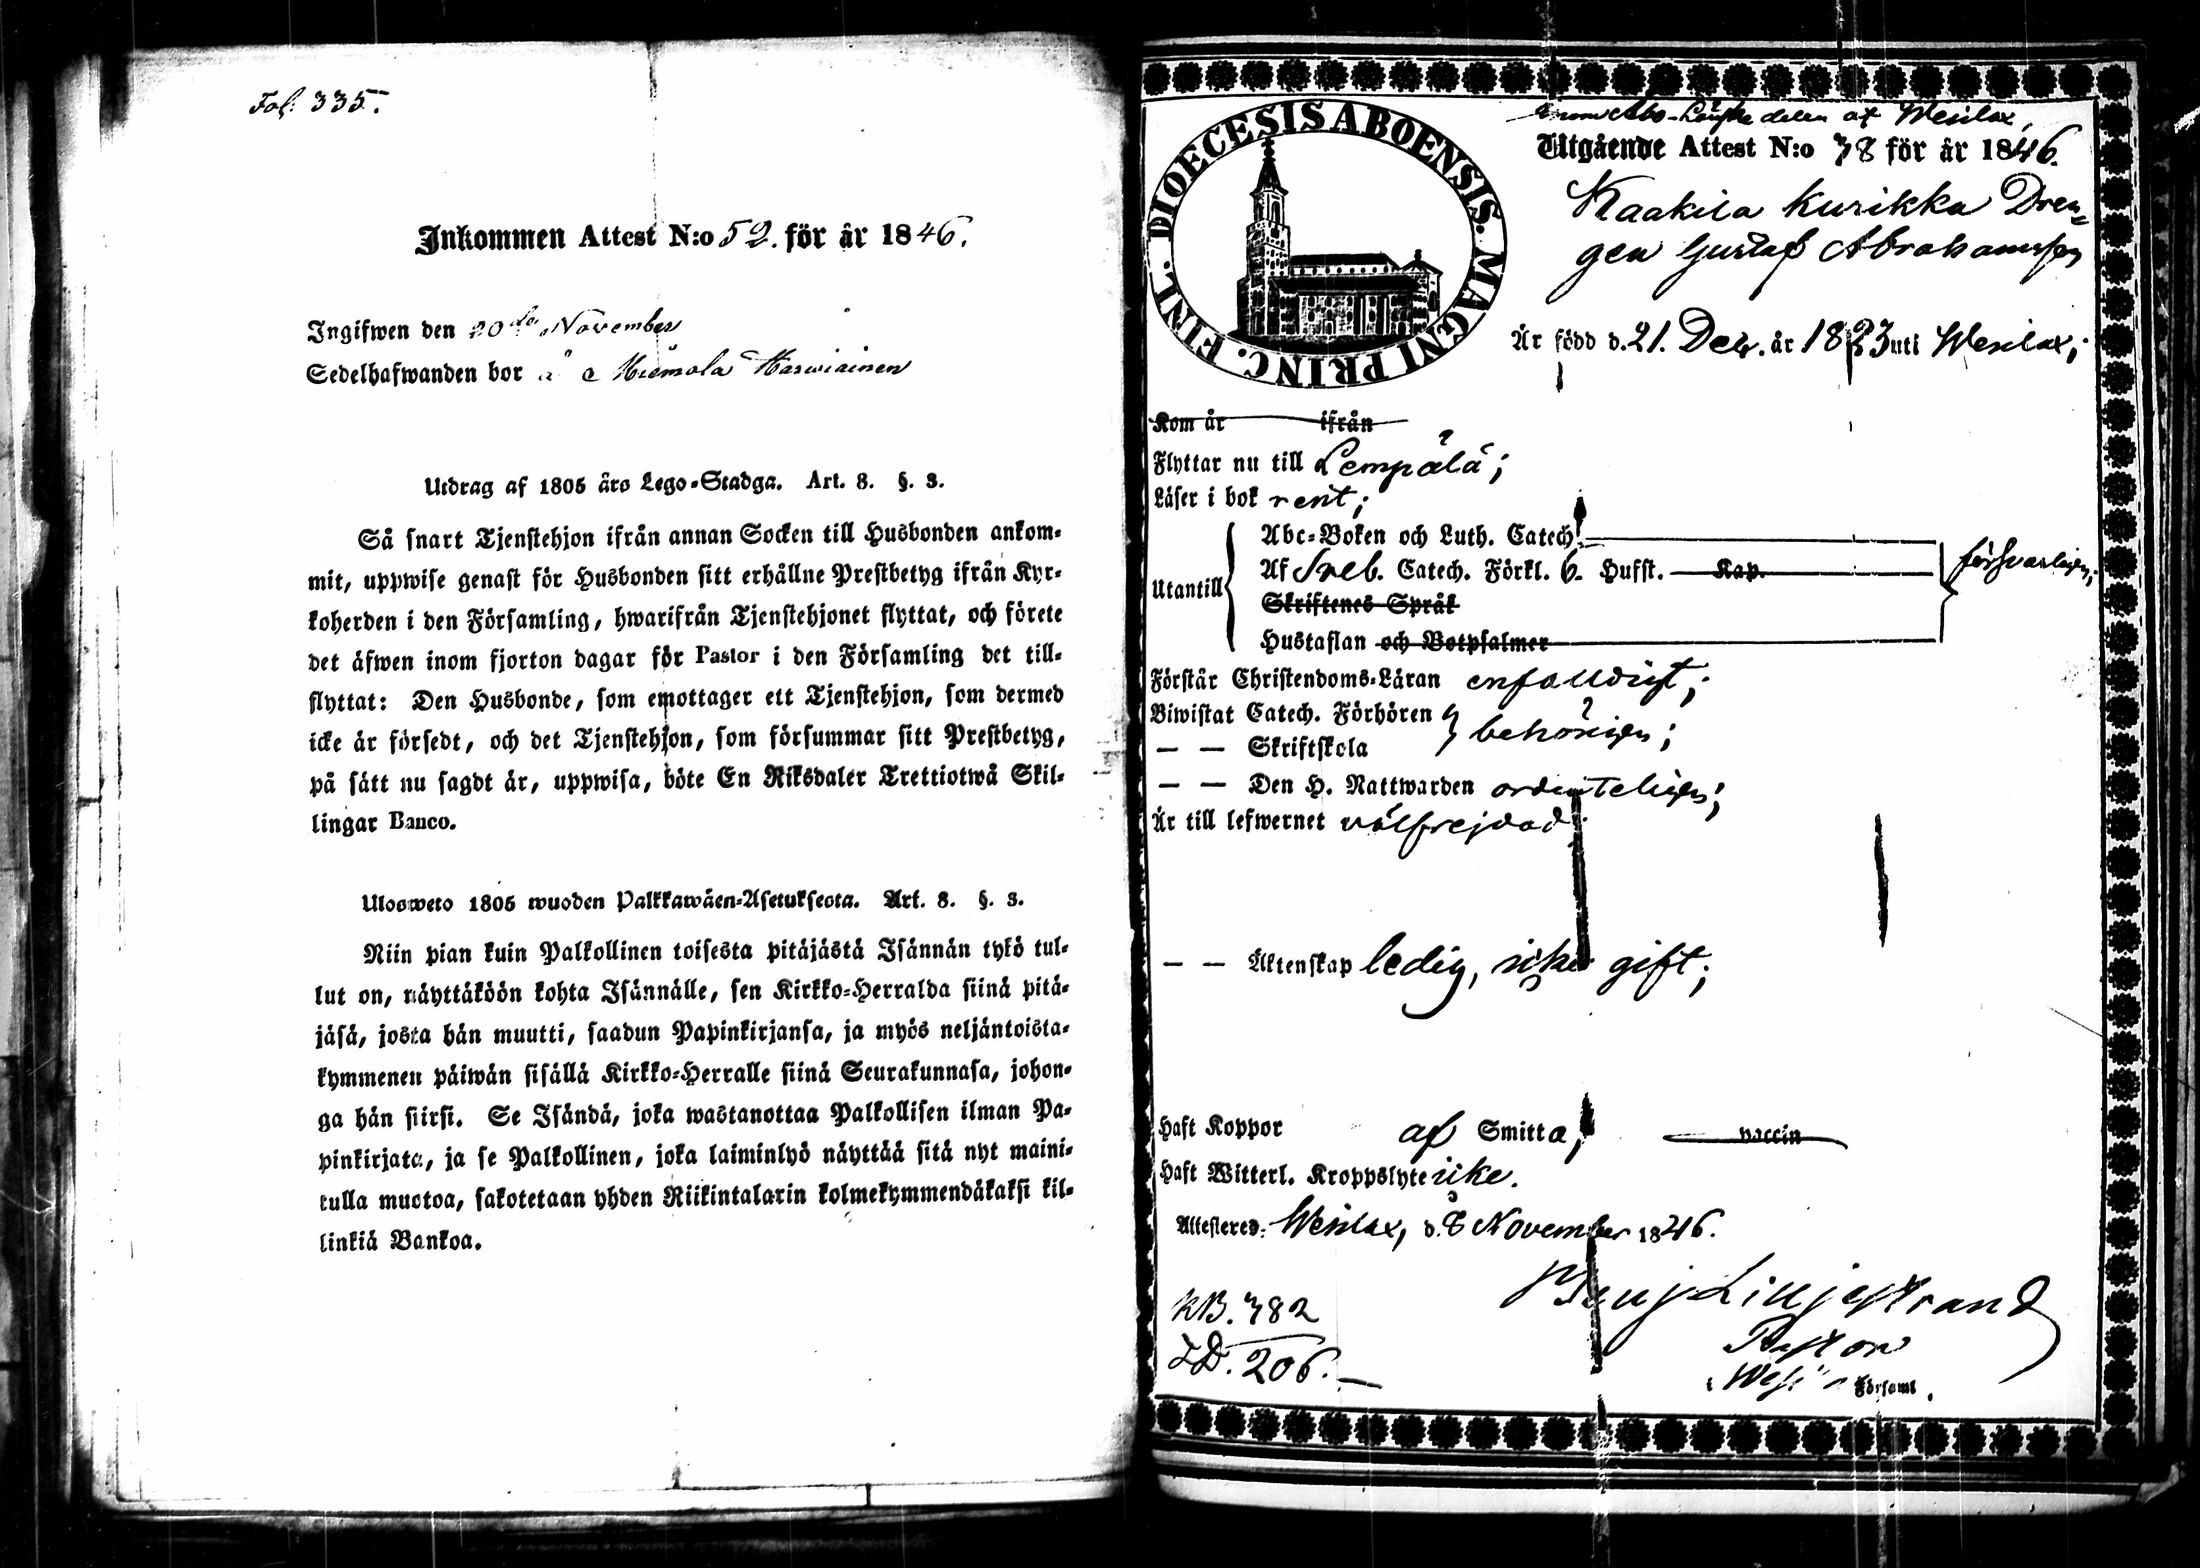 Fol. 335.
Inkommen Attest N:o 52. för år 1846.
Ingifwen den 20de November
Sedelhafwanden bor å Miemola Harwiainen
Utdrag af 1805 års Lego-Stadga. Art. 8. §. 3.
Så snart Tjenstehjon ifrån annan Socken till Husbonden ankom-
mit, uppwise genast för Husbonden sitt erhållne Prestbetyg ifrån Kyr-
koherden i den Församling, hwarifrån Tjenstehjonet flyttat, och förete
det äfwen inom fjorton dagar för Pastor i den Församling det till-
flyttat: Den Husbonde, som emottager ett Tjenstehjon, som dermed
icke är försedt, och det Tjenstehjon, som försummar sitt Prestbetyg,
på sätt nu sagdt är, uppwisa, böte En Riksdaler Trettiotwå Skil-
lingar Banco.
Ulosweto 1805 wuoden Palkkawäen-Asetuksesta. Art. 8. §. 3.
Niin pian kuin Palkollinen toisesta pitäjästä Isännän tykö tul-
lut on, näyttäköön kohta Isännälle, sen Kirkko-Herralda siinä pitä-
jäsä, josta hän muutti, saadun Papinkirjansa, ja myös neljäntoista-
kymmenen päiwän sisällä Kirkko-Herralle siinä Seurakunnasa, johon-
ga hän siirsi. Se Isändä, joka wastanottaa Palkollisen ilman Pa-
pinkirjata, ja se Palkollinen, joka laiminlyö näyttää sitä nyt maini-
tulla muotoa, sakotetaan yhden Riikintalarin kolmekymmendäkaksi kil-
linkiä Bankoa.
DIOECESIS ABOENSIS. MAGNI PRINC. FINL.
Åbo-Länske delen af Wesilax,
Utgående Attest N:o 38 för år 1846.
Kaakila Kurikka Dren-
gen Gustaf Abrahamsson
Är född d. 21. Decbr. år 1823 uti Wesilax;
Kom år ifrån
Flyttar nu till Lempälä;
Läser i bok rent;
Utantill
Abc-Boken och Luth. Catech.
Af Sveb. Catech. Förkl. 6. Hufst. Kap.
Skriftenes Språk
Hustaflan och Botpsalmer
försvarligen;
Förstår Christendoms-Läran enfaldigt;
Biwistat Catech. Förhören
— — Skriftskola
behörigen;
— — Den H. Nattwarden ordenteligen;
Är till lefwernet välfrejdad;
— — Äktenskap ledig, icke gift;
Haft Koppor af Smitta; vaccin
Haft Witterl. Kroppslyte icke.
Attesteres: Wesilax, d. 8 November 1846.
Benj Lilljestrand
Pastor
i Församl.
KB. 382
ID. 206.